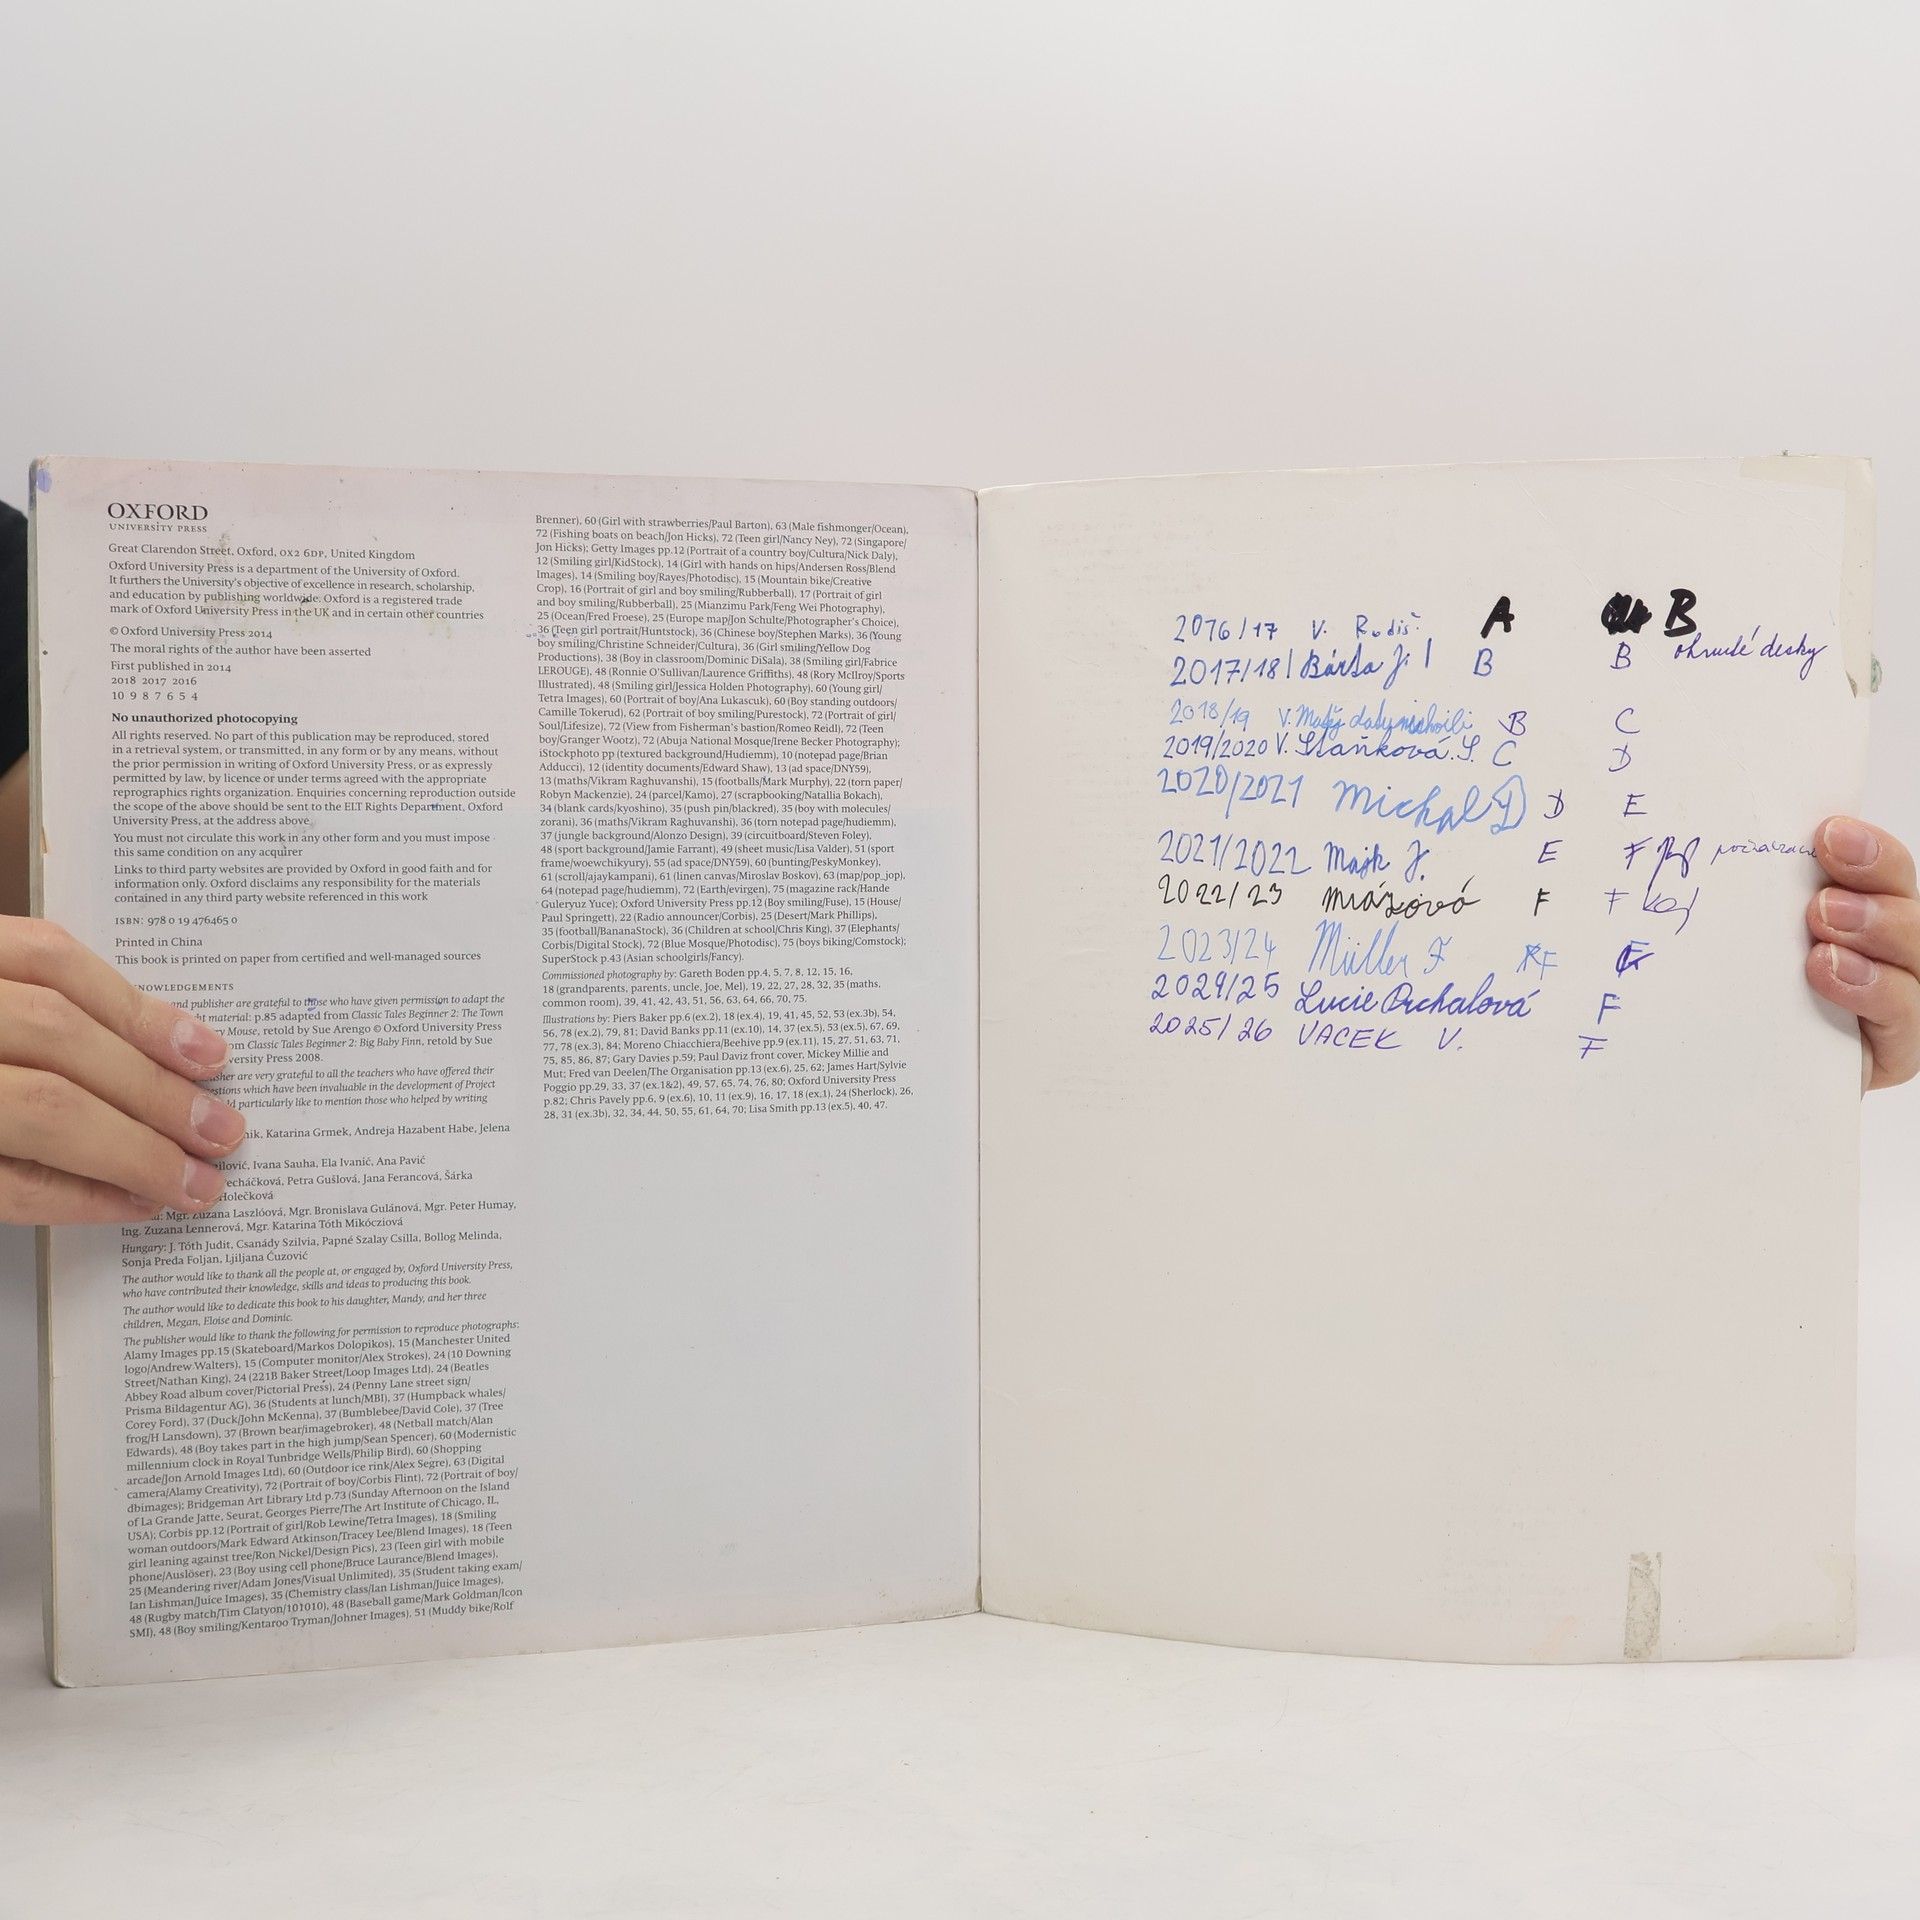 OXFORD
UNIVERSITY PRESS
Great Clarendon Street, Oxford, OX2 6DP, United Kingdom
Oxford University Press is a department of the University of Oxford.
It furthers the University's objective of excellence in research, scholarship,
and education by publishing worldwide. Oxford is a registered trade
mark of Oxford University Press in the UK and in certain other countries
© Oxford University Press 2014
The moral rights of the author have been asserted
First published in 2014
2018 2017 2016
10 9 8 7 6 5 4
No unauthorized photocopying
All rights reserved. No part of this publication may be reproduced, stored
in a retrieval system, or transmitted, in any form or by any means, without
the prior permission in writing of Oxford University Press, or as expressly
permitted by law, by licence or under terms agreed with the appropriate
reprographics rights organization. Enquiries concerning reproduction outside
the scope of the above should be sent to the ELT Rights Department, Oxford
University Press, at the address above
You must not circulate this work in any other form and you must impose
this same condition on any acquirer
Links to third party websites are provided by Oxford in good faith and for
information only. Oxford disclaims any responsibility for the materials
contained in any third party website referenced in this work
ISBN: 978 0 19 476465 0
Printed in China
This book is printed on paper from certified and well-managed sources
NOWLEDGEMENTS
and publisher are grateful to those who have given permission to adapt the
ht material: p.85 adapted from Classic Tales Beginner 2: The Town
ry Mouse, retold by Sue Arengo © Oxford University Press
om Classic Tales Beginner 2: Big Baby Finn, retold by Sue
versity Press 2008.
sher are very grateful to all the teachers who have offered their
estions which have been invaluable in the development of Project
ld particularly like to mention those who helped by writing
nik, Katarina Grmek, Andreja Hazabent Habe, Jelena
ilović, Ivana Sauha, Ela Ivanić, Ana Pavić
echáčková, Petra Gušlová, Jana Ferancová, Šárka
Holečková
Mgr. Zuzana Laszlóová, Mgr. Bronislava Gulánová, Mgr. Peter Humay,
Ing. Zuzana Lennerová, Mgr. Katarina Tóth Mikócziová
Hungary: J. Tóth Judit, Csanády Szilvia, Papné Szalay Csilla, Bollog Melinda,
Sonja Preda Foljan, Ljiljana Ćuzović
The author would like to thank all the people at, or engaged by, Oxford University Press,
who have contributed their knowledge, skills and ideas to producing this book.
The author would like to dedicate this book to his daughter, Mandy, and her three
children, Megan, Eloise and Dominic.
The publisher would like to thank the following for permission to reproduce photographs:
Alamy Images pp.15 (Skateboard/Markos Dolopikos), 15 (Manchester United
logo/Andrew Walters), 15 (Computer monitor/Alex Strokes), 24 (10 Downing
Street/Nathan King), 24 (221B Baker Street/Loop Images Ltd), 24 (Beatles
Abbey Road album cover/Pictorial Press), 24 (Penny Lane street sign/
Prisma Bildagentur AG), 36 (Students at lunch/MBI), 37 (Humpback whales/
Corey Ford), 37 (Duck/John McKenna), 37 (Bumblebee/David Cole), 37 (Tree
frog/H Lansdown), 37 (Brown bear/imagebroker), 48 (Netball match/Alan
Edwards), 48 (Boy takes part in the high jump/Sean Spencer), 60 (Modernistic
millennium clock in Royal Tunbridge Wells/Philip Bird), 60 (Shopping
arcade/Jon Arnold Images Ltd), 60 (Outdoor ice rink/Alex Segre), 63 (Digital
camera/Alamy Creativity), 72 (Portrait of boy/Corbis Flint), 72 (Portrait of boy/
dbimages); Bridgeman Art Library Ltd p.73 (Sunday Afternoon on the Island
of La Grande Jatte, Seurat, Georges Pierre/The Art Institute of Chicago, IL,
USA); Corbis pp.12 (Portrait of girl/Rob Lewine/Tetra Images), 18 (Smiling
woman outdoors/Mark Edward Atkinson/Tracey Lee/Blend Images), 18 (Teen
girl leaning against tree/Ron Nickel/Design Pics), 23 (Teen girl with mobile
phone/Auslöser), 23 (Boy using cell phone/Bruce Laurance/Blend Images),
25 (Meandering river/Adam Jones/Visual Unlimited), 35 (Student taking exam/
Ian Lishman/Juice Images), 35 (Chemistry class/Ian Lishman/Juice Images),
48 (Rugby match/Tim Clatyon/101010), 48 (Baseball game/Mark Goldman/Icon
SMI), 48 (Boy smiling/Kentaroo Tryman/Johner Images), 51 (Muddy bike/Rolf
Brenner), 60 (Girl with strawberries/Paul Barton), 63 (Male fishmonger/Ocean),
72 (Fishing boats on beach/Jon Hicks), 72 (Teen girl/Nancy Ney), 72 (Singapore/
Jon Hicks); Getty Images pp.12 (Portrait of a country boy/Cultura/Nick Daly),
12 (Smiling girl/KidStock), 14 (Girl with hands on hips/Andersen Ross/Blend
Images), 14 (Smiling boy/Rayes/Photodisc), 15 (Mountain bike/Creative
Crop), 16 (Portrait of girl and boy smiling/Rubberball), 17 (Portrait of girl
and boy smiling/Rubberball), 25 (Mianzimu Park/Feng Wei Photography),
25 (Ocean/Fred Froese), 25 (Europe map/Jon Schulte/Photographer's Choice),
36 (Teen girl portrait/Huntstock), 36 (Chinese boy/Stephen Marks), 36 (Young
boy smiling/Christine Schneider/Cultura), 36 (Girl smiling/Yellow Dog
Productions), 38 (Boy in classroom/Dominic DiSala), 38 (Smiling girl/Fabrice
LEROUGE), 48 (Ronnie O'Sullivan/Laurence Griffiths), 48 (Rory McIlroy/Sports
Illustrated), 48 (Smiling girl/Jessica Holden Photography), 60 (Young girl/
Tetra Images), 60 (Portrait of boy/Ana Lukascuk), 60 (Boy standing outdoors/
Camille Tokerud), 62 (Portrait of boy smiling/Purestock), 72 (Portrait of girl/
Soul/Lifesize), 72 (View from Fisherman's bastion/Romeo Reidl), 72 (Teen
boy/Granger Wootz), 72 (Abuja National Mosque/Irene Becker Photography);
iStockphoto pp (textured background/Hudiemm), 10 (notepad page/Brian
Adducci), 12 (identity documents/Edward Shaw), 13 (ad space/DNY59),
13 (maths/Vikram Raghuvanshi), 15 (footballs/Mark Murphy), 22 (torn paper/
Robyn Mackenzie), 24 (parcel/Kamo), 27 (scrapbooking/Natallia Bokach),
34 (blank cards/kyoshino), 35 (push pin/blackred), 35 (boy with molecules/
zorani), 36 (maths/Vikram Raghuvanshi), 36 (torn notepad page/hudiemm),
37 (jungle background/Alonzo Design), 39 (circuitboard/Steven Foley),
48 (sport background/Jamie Farrant), 49 (sheet music/Lisa Valder), 51 (sport
frame/woewchikyury), 55 (ad space/DNY59), 60 (bunting/PeskyMonkey),
61 (scroll/ajaykampani), 61 (linen canvas/Miroslav Boskov), 63 (map/pop_jop),
64 (notepad page/hudiemm), 72 (Earth/evirgen), 75 (magazine rack/Hande
Guleryuz Yuce); Oxford University Press pp.12 (Boy smiling/Fuse), 15 (House/
Paul Springett), 22 (Radio announcer/Corbis), 25 (Desert/Mark Phillips),
35 (football/BananaStock), 36 (Children at school/Chris King), 37 (Elephants/
Corbis/Digital Stock), 72 (Blue Mosque/Photodisc), 75 (boys biking/Comstock);
SuperStock p.43 (Asian schoolgirls/Fancy).
Commissioned photography by: Gareth Boden pp.4, 5, 7, 8, 12, 15, 16,
18 (grandparents, parents, uncle, Joe, Mel), 19, 22, 27, 28, 32, 35 (maths,
common room), 39, 41, 42, 43, 51, 56, 63, 64, 66, 70, 75.
Illustrations by: Piers Baker pp.6 (ex.2), 18 (ex.4), 19, 41, 45, 52, 53 (ex.3b), 54,
56, 78 (ex.2), 79, 81; David Banks pp.11 (ex.10), 14, 37 (ex.5), 53 (ex.5), 67, 69,
77, 78 (ex.3), 84; Moreno Chiacchiera/Beehive pp.9 (ex.11), 15, 27, 51, 63, 71,
75, 85, 86, 87; Gary Davies p.59; Paul Daviz front cover, Mickey Millie and
Mut; Fred van Deelen/The Organisation pp.13 (ex.6), 25, 62; James Hart/Sylvie
Poggio pp.29, 33, 37 (ex.1&2), 49, 57, 65, 74, 76, 80; Oxford University Press
p.82; Chris Pavely pp.6, 9 (ex.6), 10, 11 (ex.9), 16, 17, 18 (ex.1), 24 (Sherlock), 26,
28, 31 (ex.3b), 32, 34, 44, 50, 55, 61, 64, 70; Lisa Smith pp.13 (ex.5), 40, 47.
2016/17 V. Rudiš A B
2017/18 Bárta J. B B ohnuté desky
2018/19 V. Matěj B C
2019/2020 V. Staňková. S. C D
2020/2021 Michal D E
2021/2022 Majk J. E F
2022/23 Mrázová F F
2023/24 Müller F F
2024/25 Lucie Puchalová F
2025/26 VACEK V. F